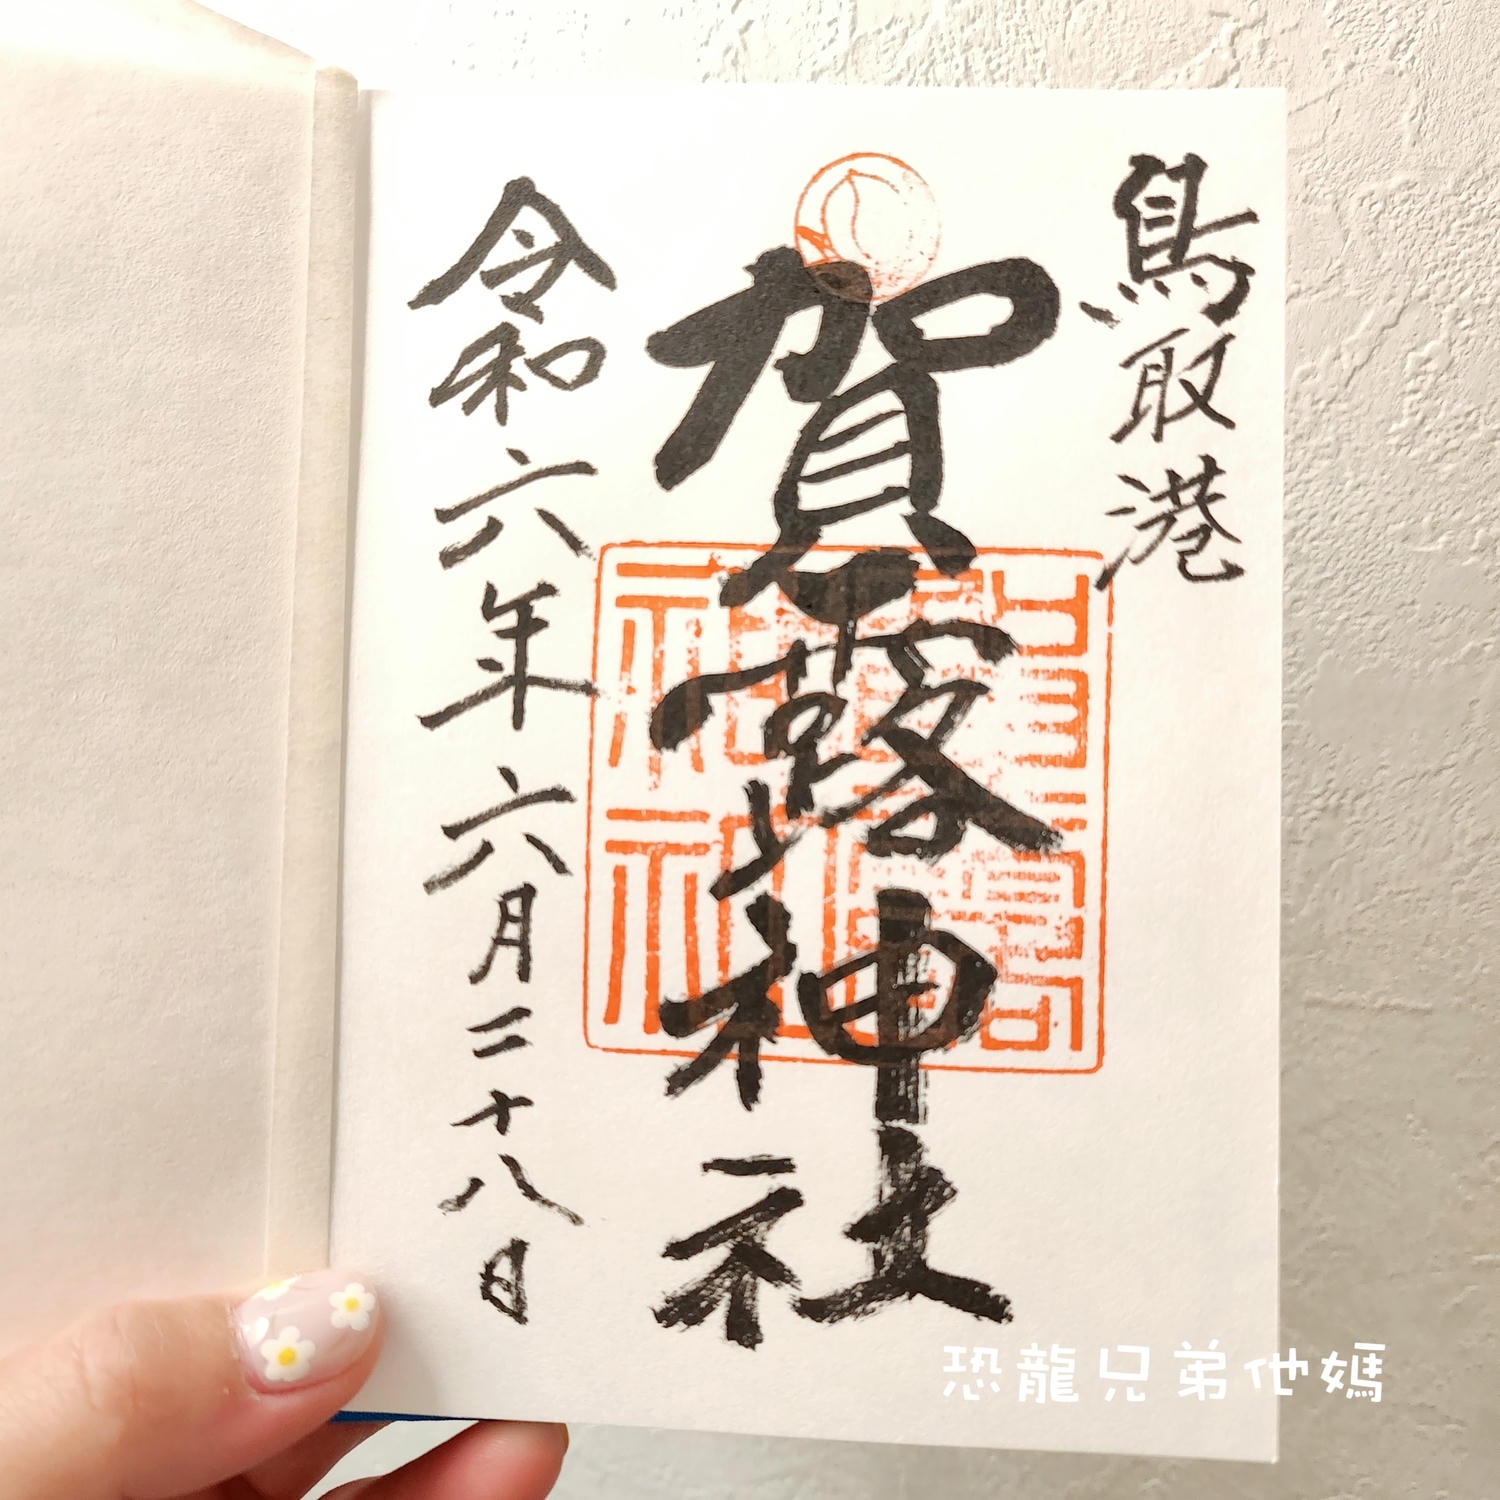 鳥取港
賀露神社
令和六年六月二十八日
恐龍兄弟他媽